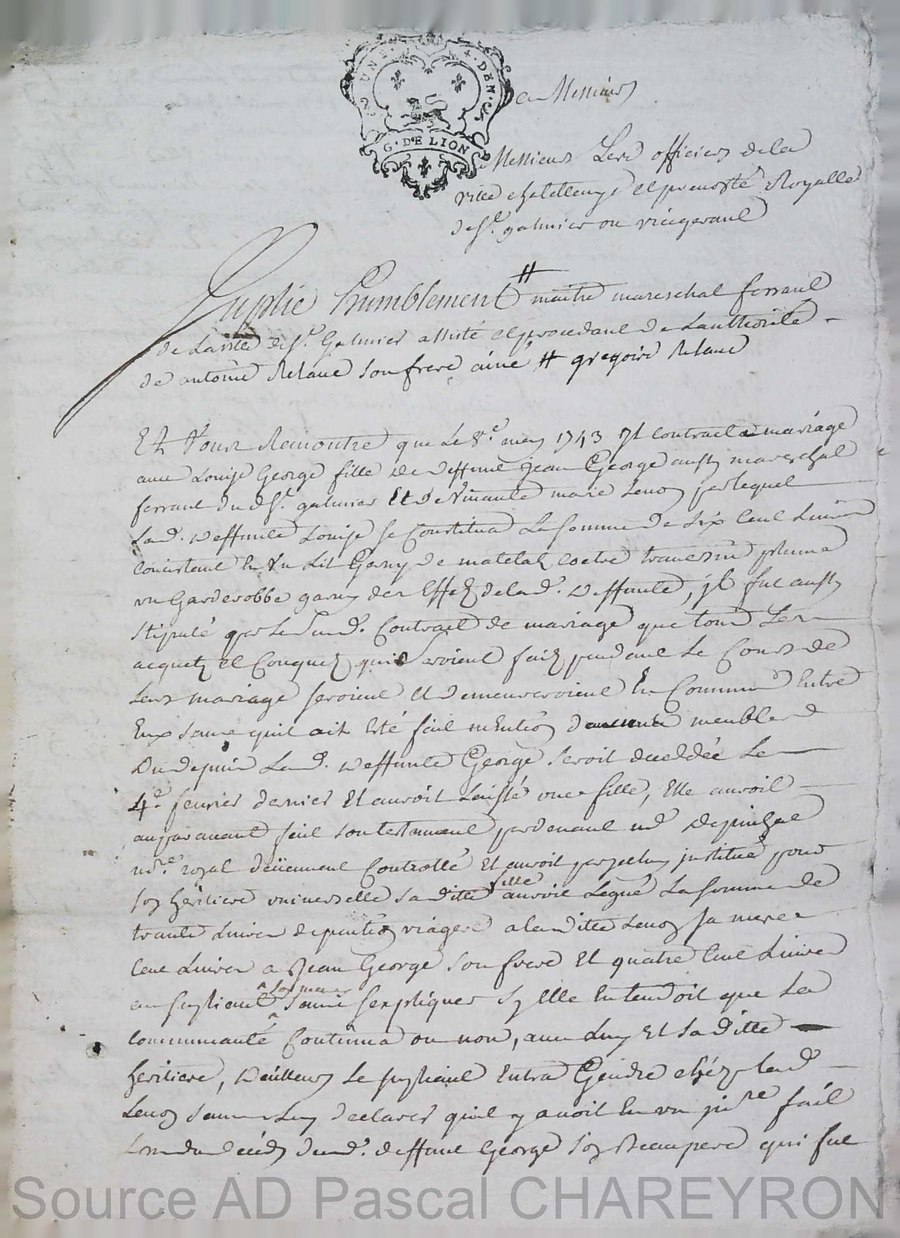 G. DE LION
a Messieurs
Messieurs Les officiers de la
ville chatellenye et prevosté Royalle
de st. galmier ou vicegerant
Suplie humblement # maitre mareschal ferrant
de La ville de st. Galmier assisté et procedant de Lauthorité
de antoine Relave son frere ainé # gregoire Relave
Et Pour Remontre que Le 8e. may 1743 Il contracta mariage
avec Louise George fille de deffunt jean George aussy mareschal
ferrant dud. st. galmier Et de vivante marie par lequel
Lad. deffunte Louise se Constitua La somme de six Cent Livres
Concistant En Un Lit Garny de matelat coetre traversin plume
un Garderobbe garny des Effets de lad. deffunte, jl fut aussy
stipulé par Le susd. Contract de mariage que tous Les
acquets et Conquets quis seroient faits pendant Le Cours de
Leur mariage seroient Et demeureroient En Commun Entre
Eux sans quil ait Eté fait mention daucuns meubles
Du depuis Lad. deffunte George seroit decedée Le
4e. fevrier dernier Et auroit Laissé une fille, Elle auroit
auparavant fait son testament pardevant me.
nre. royal düement Controllé Et auroit par jceluy jnstitué pour
son héritiere universelle sa ditte fille auroit Legué La somme de
trante Livres de pention viagere a la ditte sa mere
Cent Livres a Jean George son frere Et quatre Cent Livres
au supliant son mary sans sexpliquer sy Elle Entendoit que La
communauté Continua ou non, avec Luy Et sa ditte
heritiere, Dailleurs Le supliant Entra Gendre chéz lad.
sans Luy declarer quil y avoit Eu un jnre. fait
Lors du deceds dud. deffunt George son Beaupere qui fut
Source AD Pascal CHAREYRON